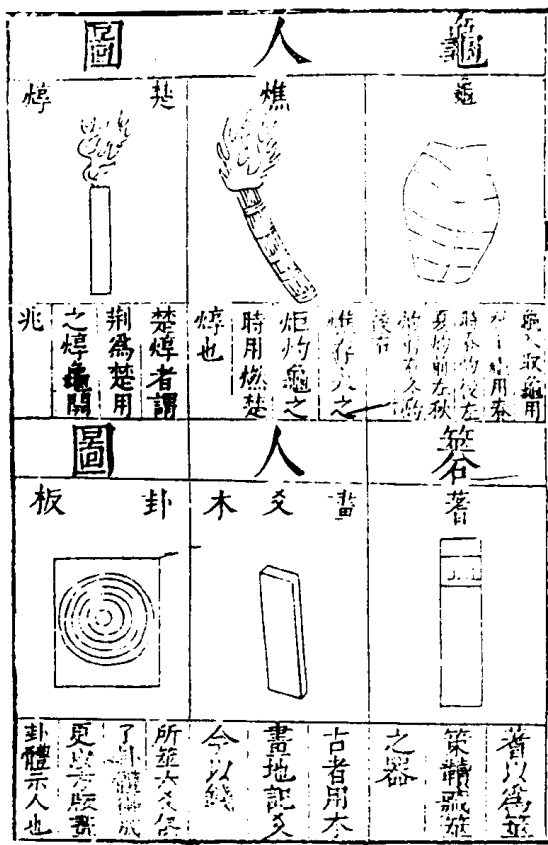 龜人圖
龜
龜人取龜用
秋用春
時春灼後左
夏灼前左秋
灼前右冬灼
後右
燋
燋存火之
炬灼龜之
時用燃楚
焞也
楚焞
楚焞者謂
荊為楚用
之焞龜開
兆
筮人圖
蓍
蓍以為筮
筞韇藏筮
之器
畫爻木
古者用木
畫地記爻
今以錢
卦板
所筮六爻俱
了卦體備成
更以方版畫
卦體示人也